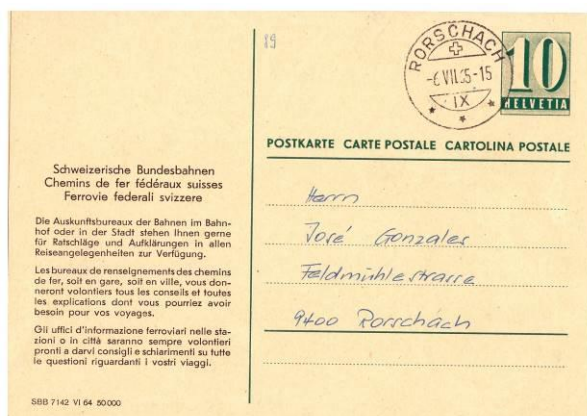 19
RORSCHACH
-6.VII.65-15
IX
10
HELVETIA
POSTKARTE CARTE POSTALE CARTOLINA POSTALE
Schweizerische Bundesbahnen
Chemins de fer fédéraux suisses
Ferrovie federali svizzere
Die Auskunftsbureaux der Bahnen im Bahn-
hof oder in der Stadt stehen Ihnen gerne
für Ratschläge und Aufklärungen in allen
Reiseangelegenheiten zur Verfügung.
Les bureaux de renseignements des chemins
de fer, soit en gare, soit en ville, vous don-
neront volontiers tous les conseils et toutes
les explications dont vous pourriez avoir
besoin pour vos voyages.
Gli uffici d'informazione ferroviari nelle sta-
zioni o in città saranno sempre volontieri
pronti a darvi consigli e schiarimenti su tutte
le questioni riguardanti i vostri viaggi.
SBB 7142 VI 64 50000
Herrn
José Gonzales
Feldmühlestrasse
9400 Rorschach